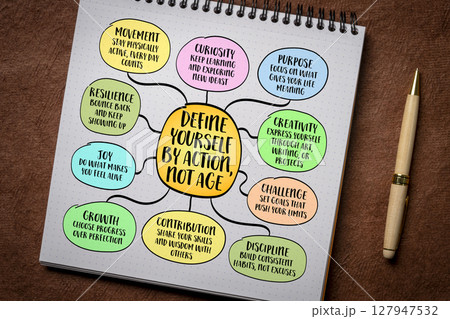 MOVEMENT
STAY PHYSICALLY
ACTIVE, EVERY DAY
COUNTS
CURIOSITY
KEEP LEARNING
AND EXPLORING
NEW IDEAS!
PURPOSE
FOCUS ON WHAT
GIVES YOUR LIFE
MEANING
RESILIENCE
BOUNCE BACK
AND KEEP
SHOWING UP
DEFINE
YOURSELF
BY ACTION,
NOT AGE
CREATIVITY
EXPRESS YOURSELF
THROUGH ART,
WRITING, OR
PROJECTS
JOY
DO WHAT MAKES
YOU FEEL ALIVE
CHALLENGE
SET GOALS THAT
PUSH YOUR LIMITS
GROWTH
CHOOSE PROGRESS
OVER PERFECTION
CONTRIBUTION
SHARE YOUR SKILLS
AND WISDOM WITH
OTHERS
DISCIPLINE
BUILD CONSISTENT
HABITS, NOT EXCUSES
127947532